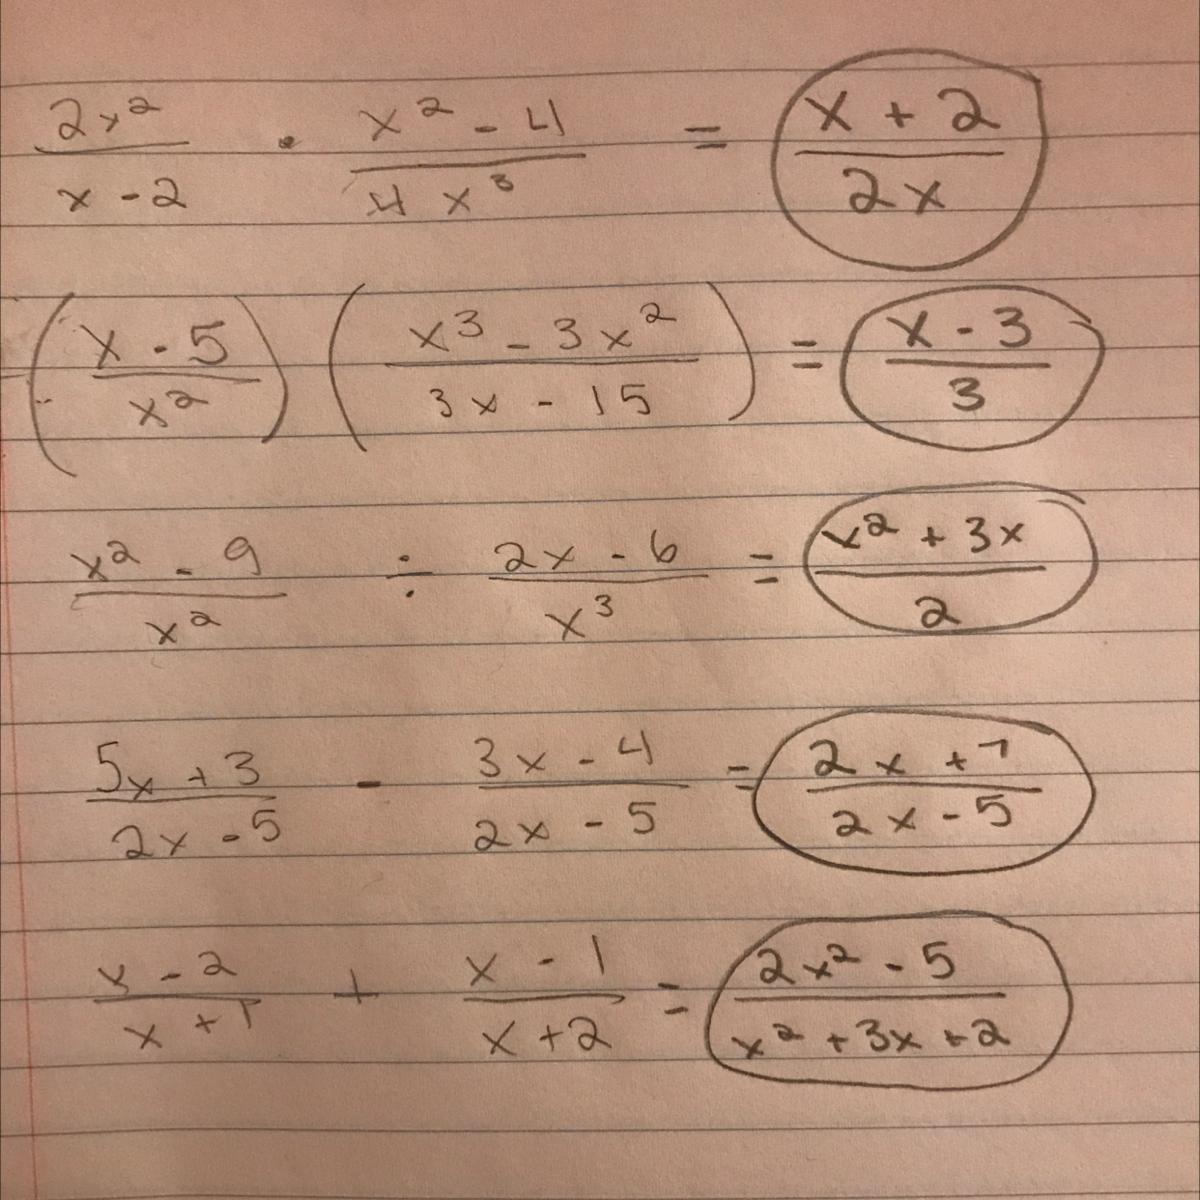 2x²/(x - 2) · (x² - 4)/(4x³) = (x + 2)/(2x)
((x - 5)/x²) ((x³ - 3x²)/(3x - 15)) = (x - 3)/3
(x² - 9)/x² ÷ (2x - 6)/x³ = (x² + 3x)/2
(5x + 3)/(2x - 5) - (3x - 4)/(2x - 5) = (2x + 7)/(2x - 5)
(x - 2)/(x + 1) + (x - 1)/(x + 2) = (2x² - 5)/(x² + 3x + 2)